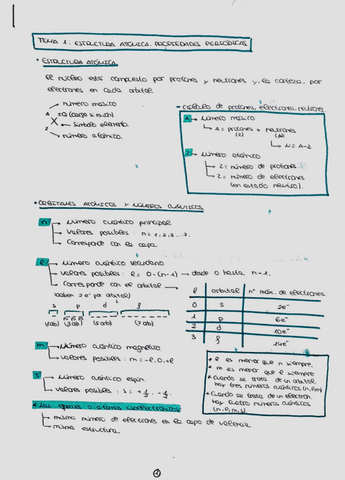 TEMA 1: ESTRUCTURA ATÓMICA. PROPIEDADES PERIÓDICAS
• ESTRUCTURA ATÓMICA
El núcleo está compuesto por protones y neutrones y, la corteza, por
electrones en cada orbital
número másico
A ±Q (carga si es ion)
X → símbolo elemento
Z número atómico
- Cálculo de protones, electrones, neutrones
A → número másico
A = protones + neutrones
(Z) (N)
N = A-Z
Z → número atómico
Z = número de protones
Z = número de electrones
(en estado neutro).
• ORBITALES ATÓMICOS Y NÚMEROS CUÁNTICOS
n → Número cuántico principal
Valores posibles: n = 1, 2, 3...
Corresponde con la capa
l → Número cuántico secundario
Valores posibles: l = 0 - (n-1) → desde 0 hasta n-1.
Corresponde con el orbital
(caben 2 e- por orbital)
s p d f
(1 orb) (3 orb) (5 orb) (7 orb)
l orbital nº máx. de electrones
0 s 2e-
1 p 6e-
2 d 10e-
3 f 14e-
m → Número cuántico magnético
Valores posibles: m = -l, 0, +l
s → Número cuántico espín
Valores posibles: s = +1/2, -1/2
* l es menor que n siempre.
* m es menor que l siempre
* Cuando se trata de un orbital
hay tres números cuánticos (n, l, m)
* Cuando se trata de un electrón
hay cuatro números cuánticos
(n, l, m, s)
especies o átomos isoelectrónicos
mismo número de electrones en la capa de valencia
misma estructura.
1